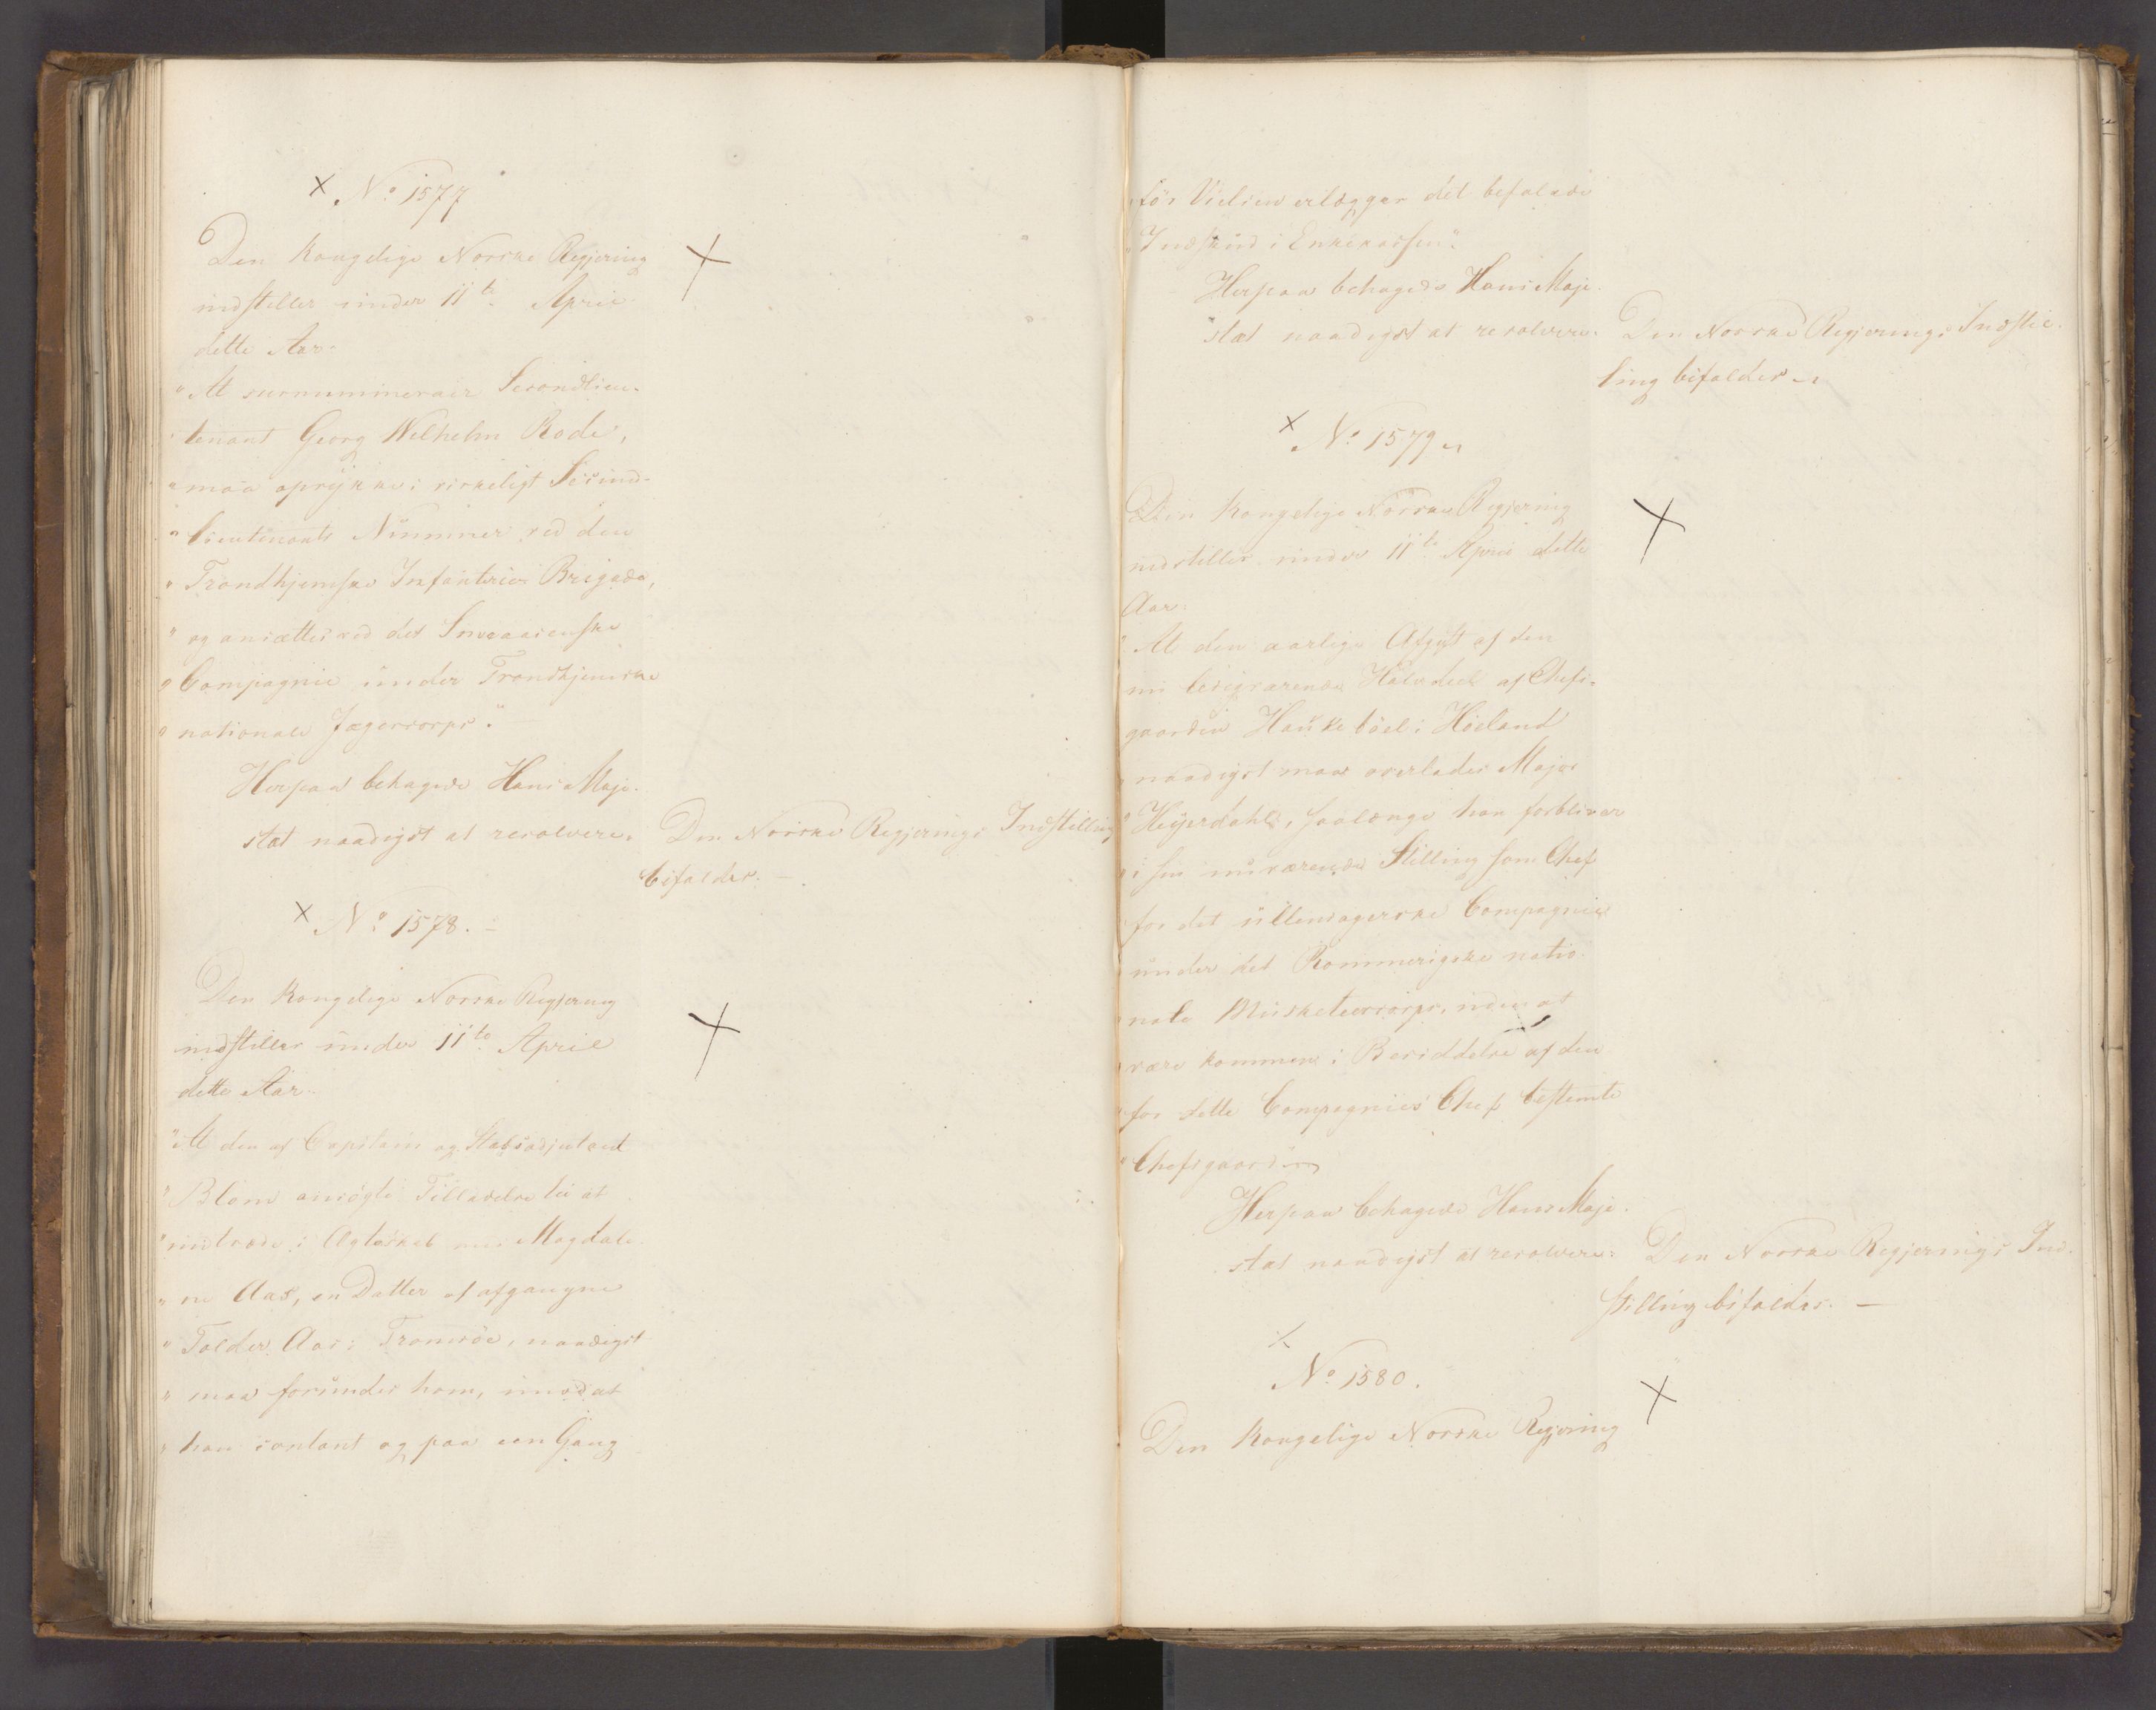 No 1577
Den Kongelige Norske Regjering
indstiller under 11te April
dette Aar.
"At surnummerair Secondlieu-
"tenant Georg Wilhelm Rode,
"maa oprykke i virkeligt Second-
"Lieutenants Nummer ved den
"Trondhjemske Infanterie Brigade,
"og ansættes ved det Snaasenske
"Compagnie under Trondhjemske
"nationale Jægercorps".
Herpaa behagede Hans Maje-
stæt naadigst at resolvere. Den Norske Regjerings Indstilling
bifaldes. —
No 1578. —
Den Kongelige Norske Regjering
indstiller under 11te April
dette Aar.
"At den af Capitain og Stabsadjutant
"Blom ansøgte Tilladelse til at
"indtræde i Ægteskab med Magdale-
"ne Aas, en Datter af afgangne
"Tolder Aas i Tromsöe, naadigst
"maa forundes ham, imod at
"han contant og paa een Gang
"för Vielsen erlægger det befalede
"Indskud i Enkekassen".
Herpaa behagede Hans Maje-
stæt naadigst at resolvere. Den Norske Regjerings Indstil-
ling bifaldes
No 1579
Den Kongelige Norske Regjering
indstiller under 11te April dette
Aar.
"At den aarlige Afgift af den
nu ledigværende Halvdeel af Chefs-
gaarden Haukeböel i Höeland
"naadigst maa overlades Major
"Heyerdahl, saalænge han forbliver
"i sin nuværende Stilling som Chef
"for det Ullensagerske Compagnie
"under det Rommerigske natio-
"nale Musketeercorps, uden at
"være kommen i Besiddelse af den
"for dette Compagnies Chef bestemte
"Chefsgaard"
Herpaa behagede Hans Maje-
stæt naadigst at resolvere: Den Norske Regjerings Ind-
stilling bifaldes. —
No 1580.
Den Kongelige Norske Regjering